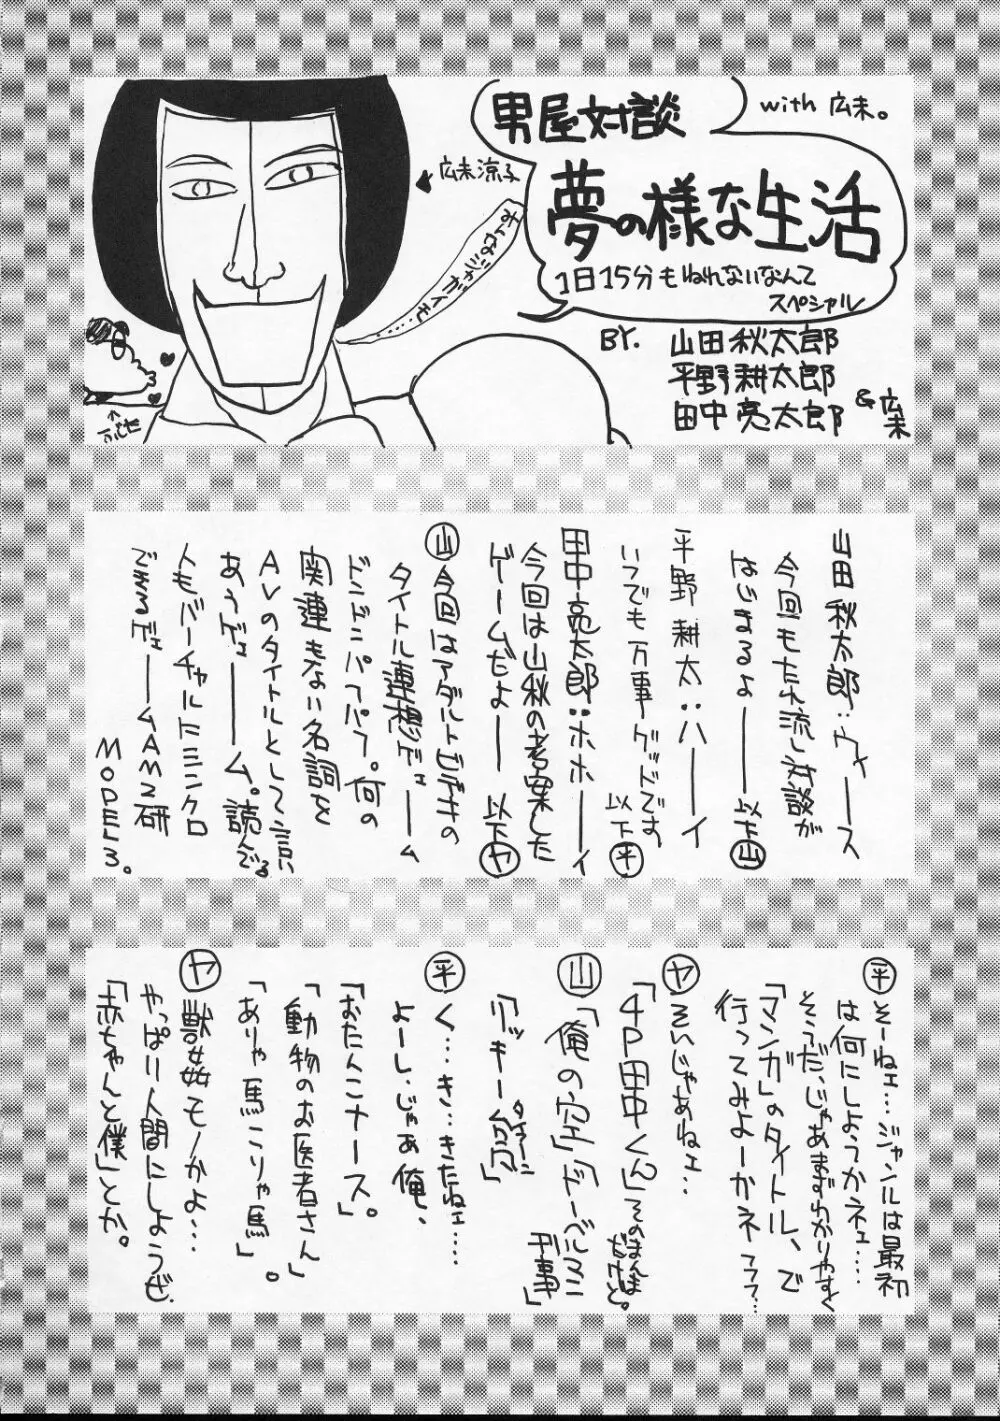 男屋対談
with 広末。
夢の様な生活
1日15分もねれないなんて
スペシャル
BY. 山田秋太郎
平野耕太郎
田中亮太郎
&広末
広末涼子
山田秋太郎:ウィース
今回もたれ流し対談が
はじまるよ――以下山
平野耕太:ハーイ
いつでも万事グッドです
以下平
田中亮太郎:ホホーイ
今回は山秋の考案した
ゲームだよー 以下ヤ
山 今回はアダルトビデオの
タイトル連想ゲェーム
ドンドンパフパフ。何の
関連もない名詞を
AVのタイトルとして言い
あうゲェ――ム。読んでる
人もバーチャルにシンクロ
できるゲェ――ムAM2研
MODEL3。
平 そーねェ…ジャンルは最初
は何にしようかネェ…
そうだ、じゃあまずわかりやすく
「マンガ」のタイトル、で
行ってみよーかネフフフ…
ヤ そいじゃあねェ…
「4P田中くん」そのまんま
だけど。
山 「俺の空」「ドーベルマン
刑事」
「リッキー台風」
タイフーン
平 く…き…きたねェ……
よーし、じゃあ俺、
「おたんこナース」。
「動物のお医者さん」
「ありゃ馬こりゃ馬」。
ヤ 獣姦モノかよ…
やっぱり人間にしようぜ.
「赤ちゃんと僕」とか。